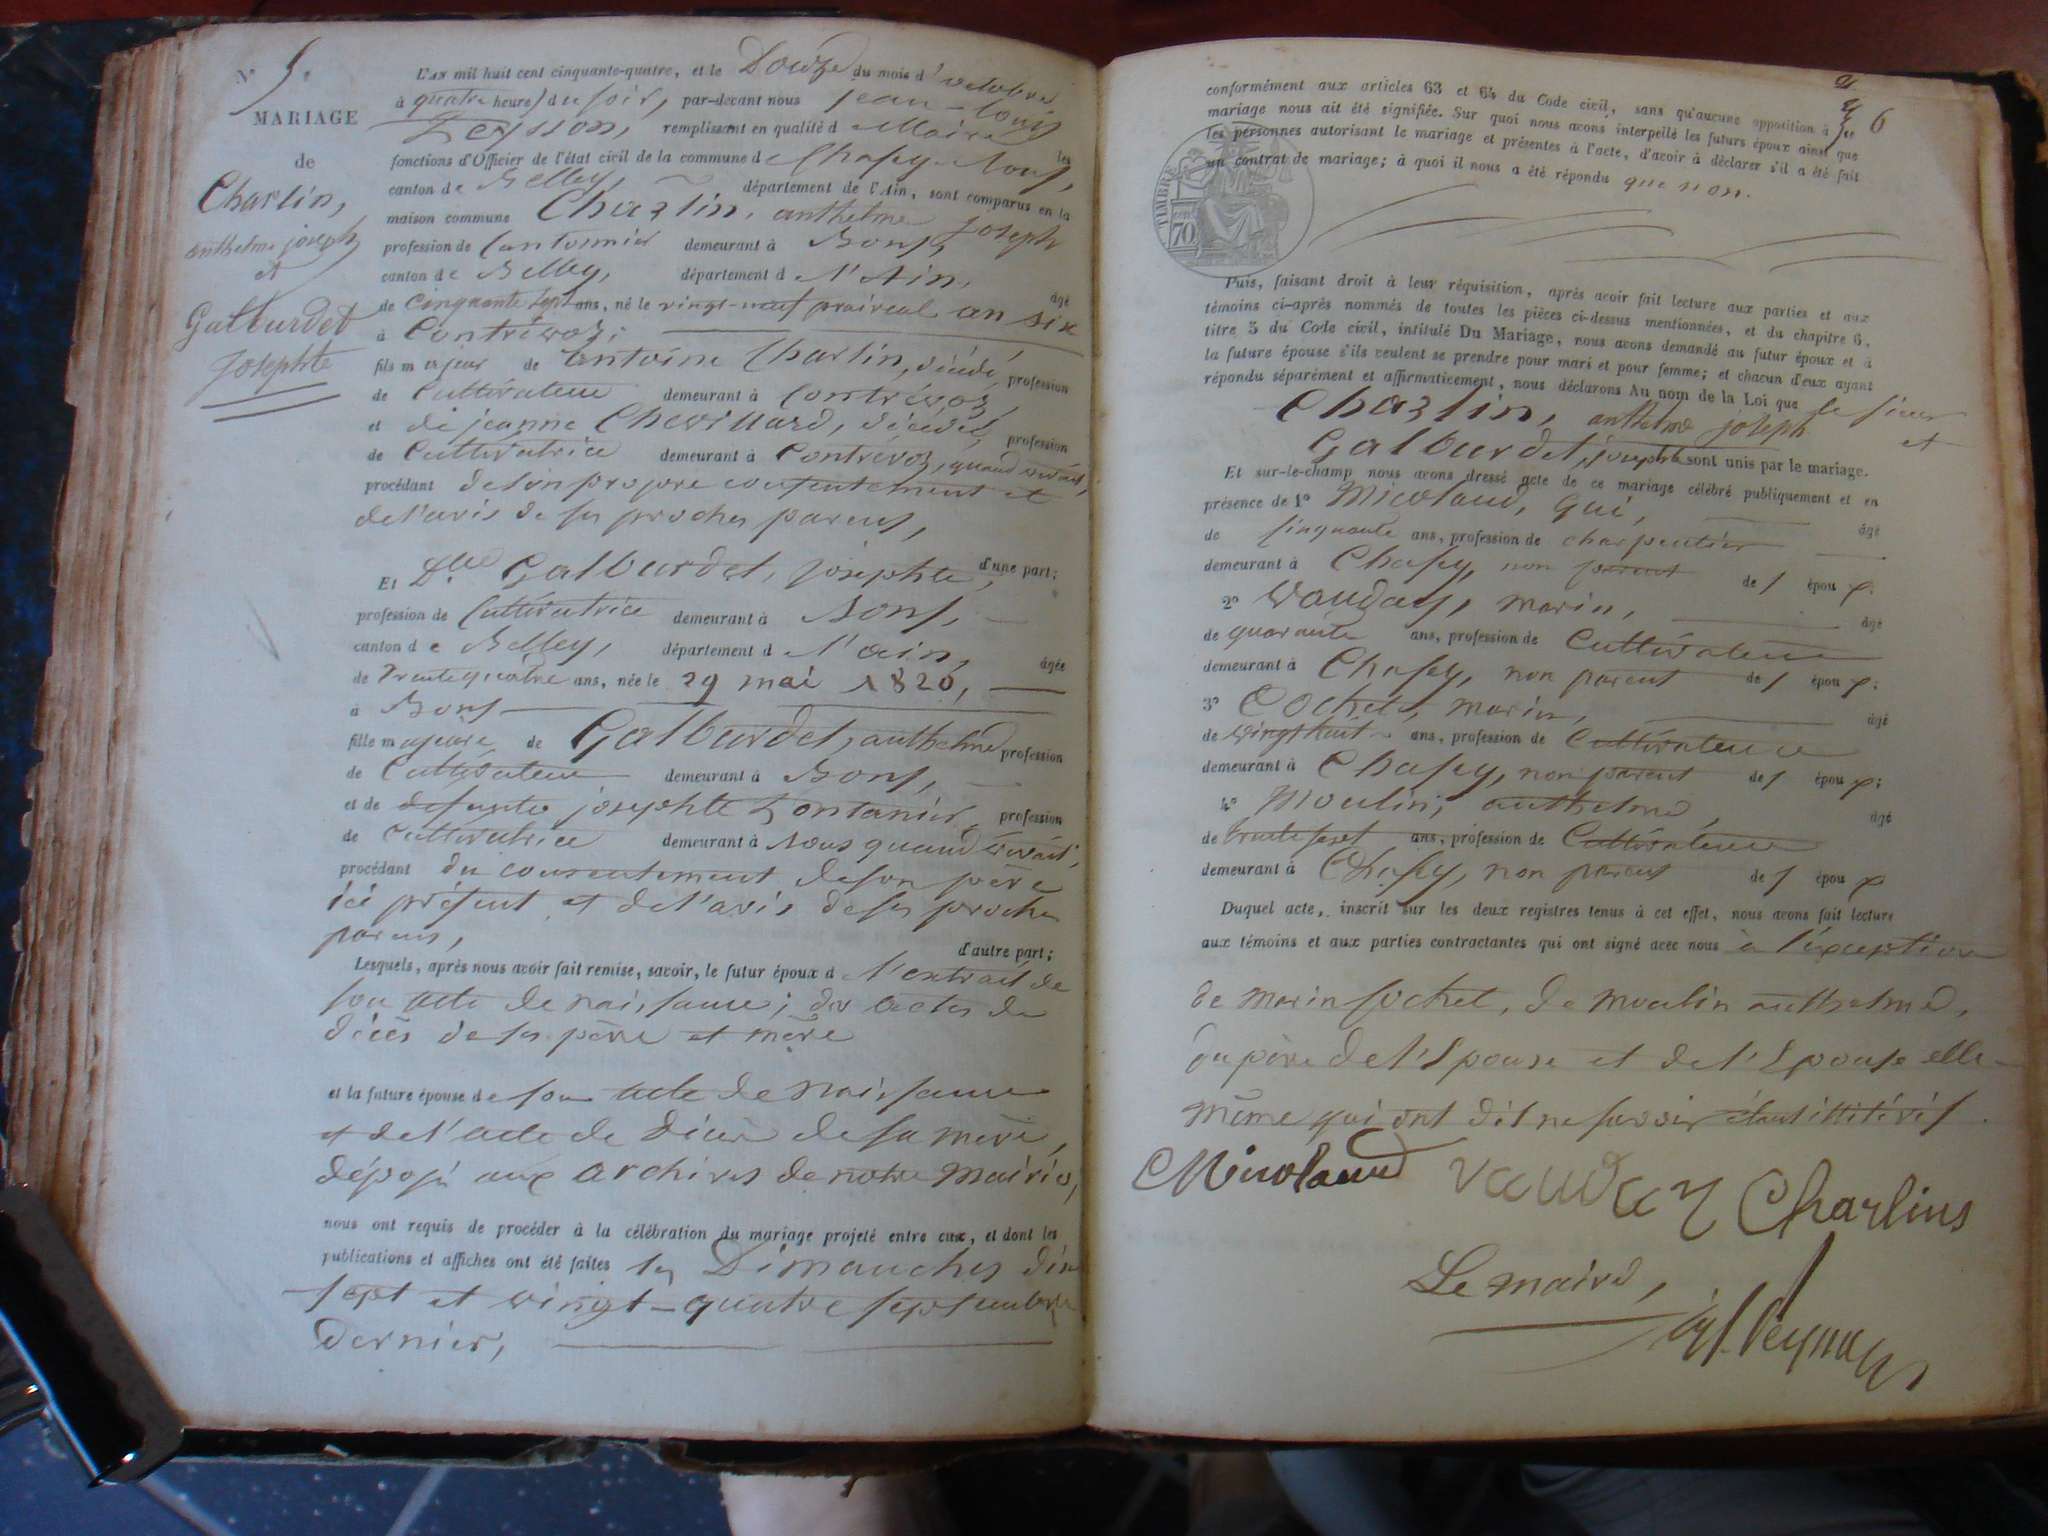 N° 5.
MARIAGE
de
Charlin,
anthelme joseph
et
Galburdet
Josephte
L'AN mil huit cent cinquante-quatre, et le Douze du mois d'octobre
à quatre heures du soir, par-devant nous jean-Louis
Peysson, remplissant en qualité de Maire les
fonctions d'Officier de l'état civil de la commune de Chasey-Bons,
canton de Belley, département de l'Ain, sont comparus en la
maison commune Charlin, anthelme Joseph
profession de Cantonnier demeurant à Bons,
canton de Belley, département d l'Ain, âgé
de cinquante sept ans, né le vingt-neuf praireal an six
à Contrevoz;
fils majeur de antoine Charlin, décédé, profession
de Cultivateur demeurant à Contrevoz,
et de jeanne Chevillard, décédée, profession
de Cultivatrice demeurant à Contrevoz, quand vivait,
procédant de son propre consentement et
de l'avis de ses proches parens,
d'une part;
Et Dlle Galburdet, josephte,
profession de Cultivatrice demeurant à Bons,
canton de Belley, département d l'ain, âgée
de trente quatre ans, née le 29 mai 1820,
à Bons
fille majeure de Galburdet, anthelme profession
de Cultivateur demeurant à Bons,
et de defunte josephte profession
de Cultivatrice demeurant à Bons quand vivait,
procédant du consentement de son père
ici présent et de l'avis de ses proches
parens,
d'autre part;
Lesquels, après nous avoir fait remise, savoir, le futur époux d l'extrait de
son acte de naissance; des actes de
décès de ses père et mère
et la future épouse de son acte de naissance
et de l'acte de décès de sa mère,
déposé aux archives de notre mairie,
nous ont requis de procéder à la célébration du mariage projeté entre eux, et dont les
publications et affiches ont été faites les Dimanches dix
sept et vingt-quatre septembre
dernier,
6
conformément aux articles 63 et 64 du Code civil, sans qu'aucune opposition à ce
mariage nous ait été signifiée. Sur quoi nous avons interpellé les futurs époux ainsi que
les personnes autorisant le mariage et présentes à l'acte, d'avoir à déclarer s'il a été fait
un contrat de mariage; à quoi il nous a été répondu que non.
TIMBRE
70
Puis, faisant droit à leur réquisition, après avoir fait lecture aux parties et aux
témoins ci-après nommés de toutes les pièces ci-dessus mentionnées, et du chapitre 6,
titre 5 du Code civil, intitulé Du Mariage, nous avons demandé au futur époux et à
la future épouse s'ils veulent se prendre pour mari et pour femme; et chacun d'eux ayant
répondu séparément et affirmativement, nous déclarons Au nom de la Loi que le sieur
Charlin, anthelme joseph et
Galburdet, josephte sont unis par le mariage.
Et sur-le-champ nous avons dressé acte de ce mariage célébré publiquement et en
présence de 1° Micoland, Gui, âgé
de cinquante ans, profession de charpentier
demeurant à Chasey, non parent des époux;
2° Vauday, marin, âgé
de quarante ans, profession de Cultivateur
demeurant à Chasey, non parent des époux;
3° Cochet, marin, âgé
de vingt huit ans, profession de Cultivateur
demeurant à Chasey, non parent des époux;
4° Moulin, anthelme, âgé
de trente sept ans, profession de Cultivateur
demeurant à Chasey, non parent des époux
Duquel acte, inscrit sur les deux registres tenus à cet effet, nous avons fait lecture
aux témoins et aux parties contractantes qui ont signé avec nous à l'exception
de marin Cochet, de moulin anthelme,
du père de l'Epouse et de l'Epouse elle-
même qui ont dit ne savoir étant illitérés.
Micoland Vauday Charlins
Le maire,